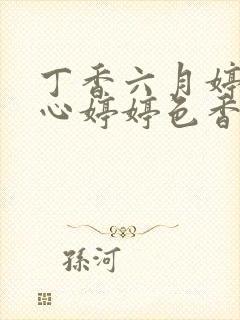 丁香六月婷
心婷婷色香
孫河